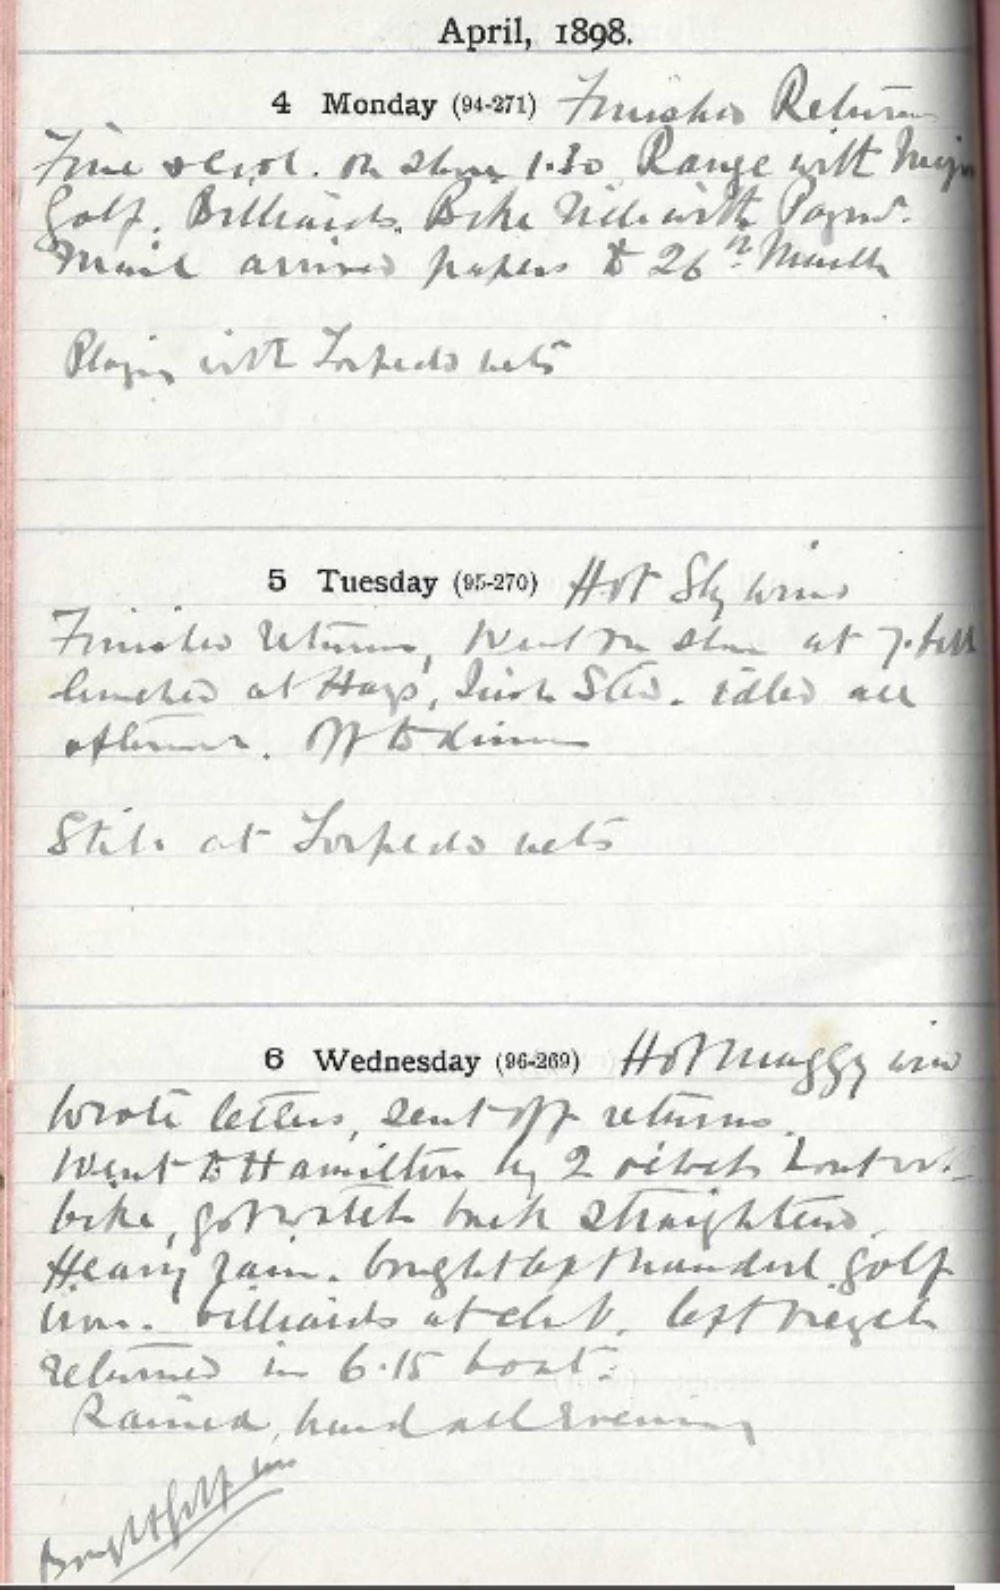 April, 1898.
4 Monday (94-271) Finished Returns
Fine & cool. on shore 1.30 Range with Major
Golf. Billiards. Bike ride with Paymr.
Mail arrived papers to 26th March
Playing with Torpedo nets
5 Tuesday (95-270) Hot Sly wind
Finished returns, Went on shore at
lunched at Hays, Irish Stew. idled all
afternoon. Off to dinner
Still at Torpedo nets
6 Wednesday (96-269) Hot Muggy wind
Wrote letters, sent off returns.
Went to Hamilton by 2 o'clock boat
bike, got watch back straightened
Heavy rain. bought left handed golf
iron. billiards at club. left bicycle
returned in 6.15 boat.
Rained hard all evening
Bought golf iron